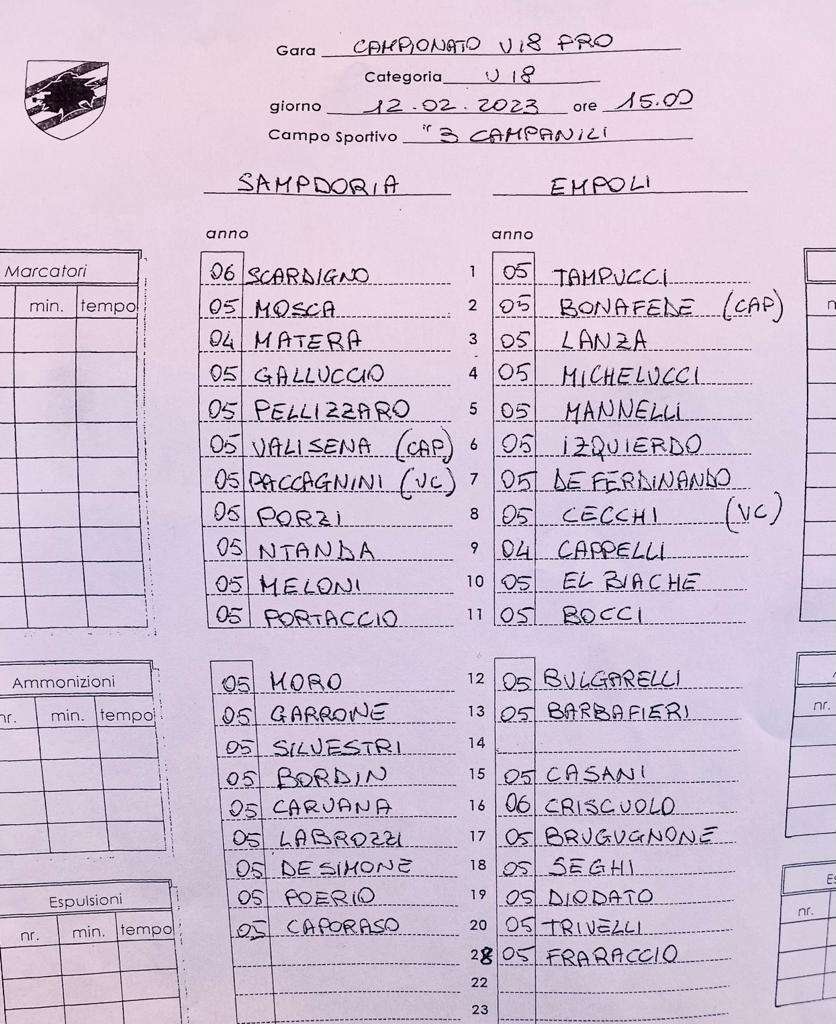 Gara CAMPIONATO U18 PRO
Categoria U18
giorno 12.02.2023 ore 15.00
Campo Sportivo "3 CAMPANILI
SAMPDORIA EMPOLI
anno anno
Marcatori
min. tempo
06 SCARDIGNO 1 05 TAMPUCCI
05 MOSCA 2 05 BONAFEDE (CAP)
04 MATERA 3 05 LANZA
05 GALLUCCIO 4 05 MICHELUCCI
05 PELLIZZARO 5 05 MANNELLI
05 VALISENA (CAP) 6 05 IZQUIERDO
05 PACCAGNINI (VC) 7 05 DE FERDINANDO
05 PORZI 8 05 CECCHI (VC)
05 NTANDA 9 04 CAPPELLI
05 MELONI 10 05 EL BIACHE
05 PORTACCIO 11 05 BOCCI
Ammonizioni
nr. min. tempo
05 MORO 12 05 BULGARELLI
05 GARRONE 13 05 BARBAFIERI
05 SILVESTRI 14
05 BORDIN 15 05 CASANI
05 CARUANA 16 06 CRISCUOLO
05 LABROZZI 17 05 BRUGUGNONE
05 DE SIMONE 18 05 SEGHI
05 POERIO 19 05 DIODATO
05 CAPORASO 20 05 TRIVELLI
28 05 FRARACCIO
22
23
Espulsioni
nr. min. tempo
nr.
nr.